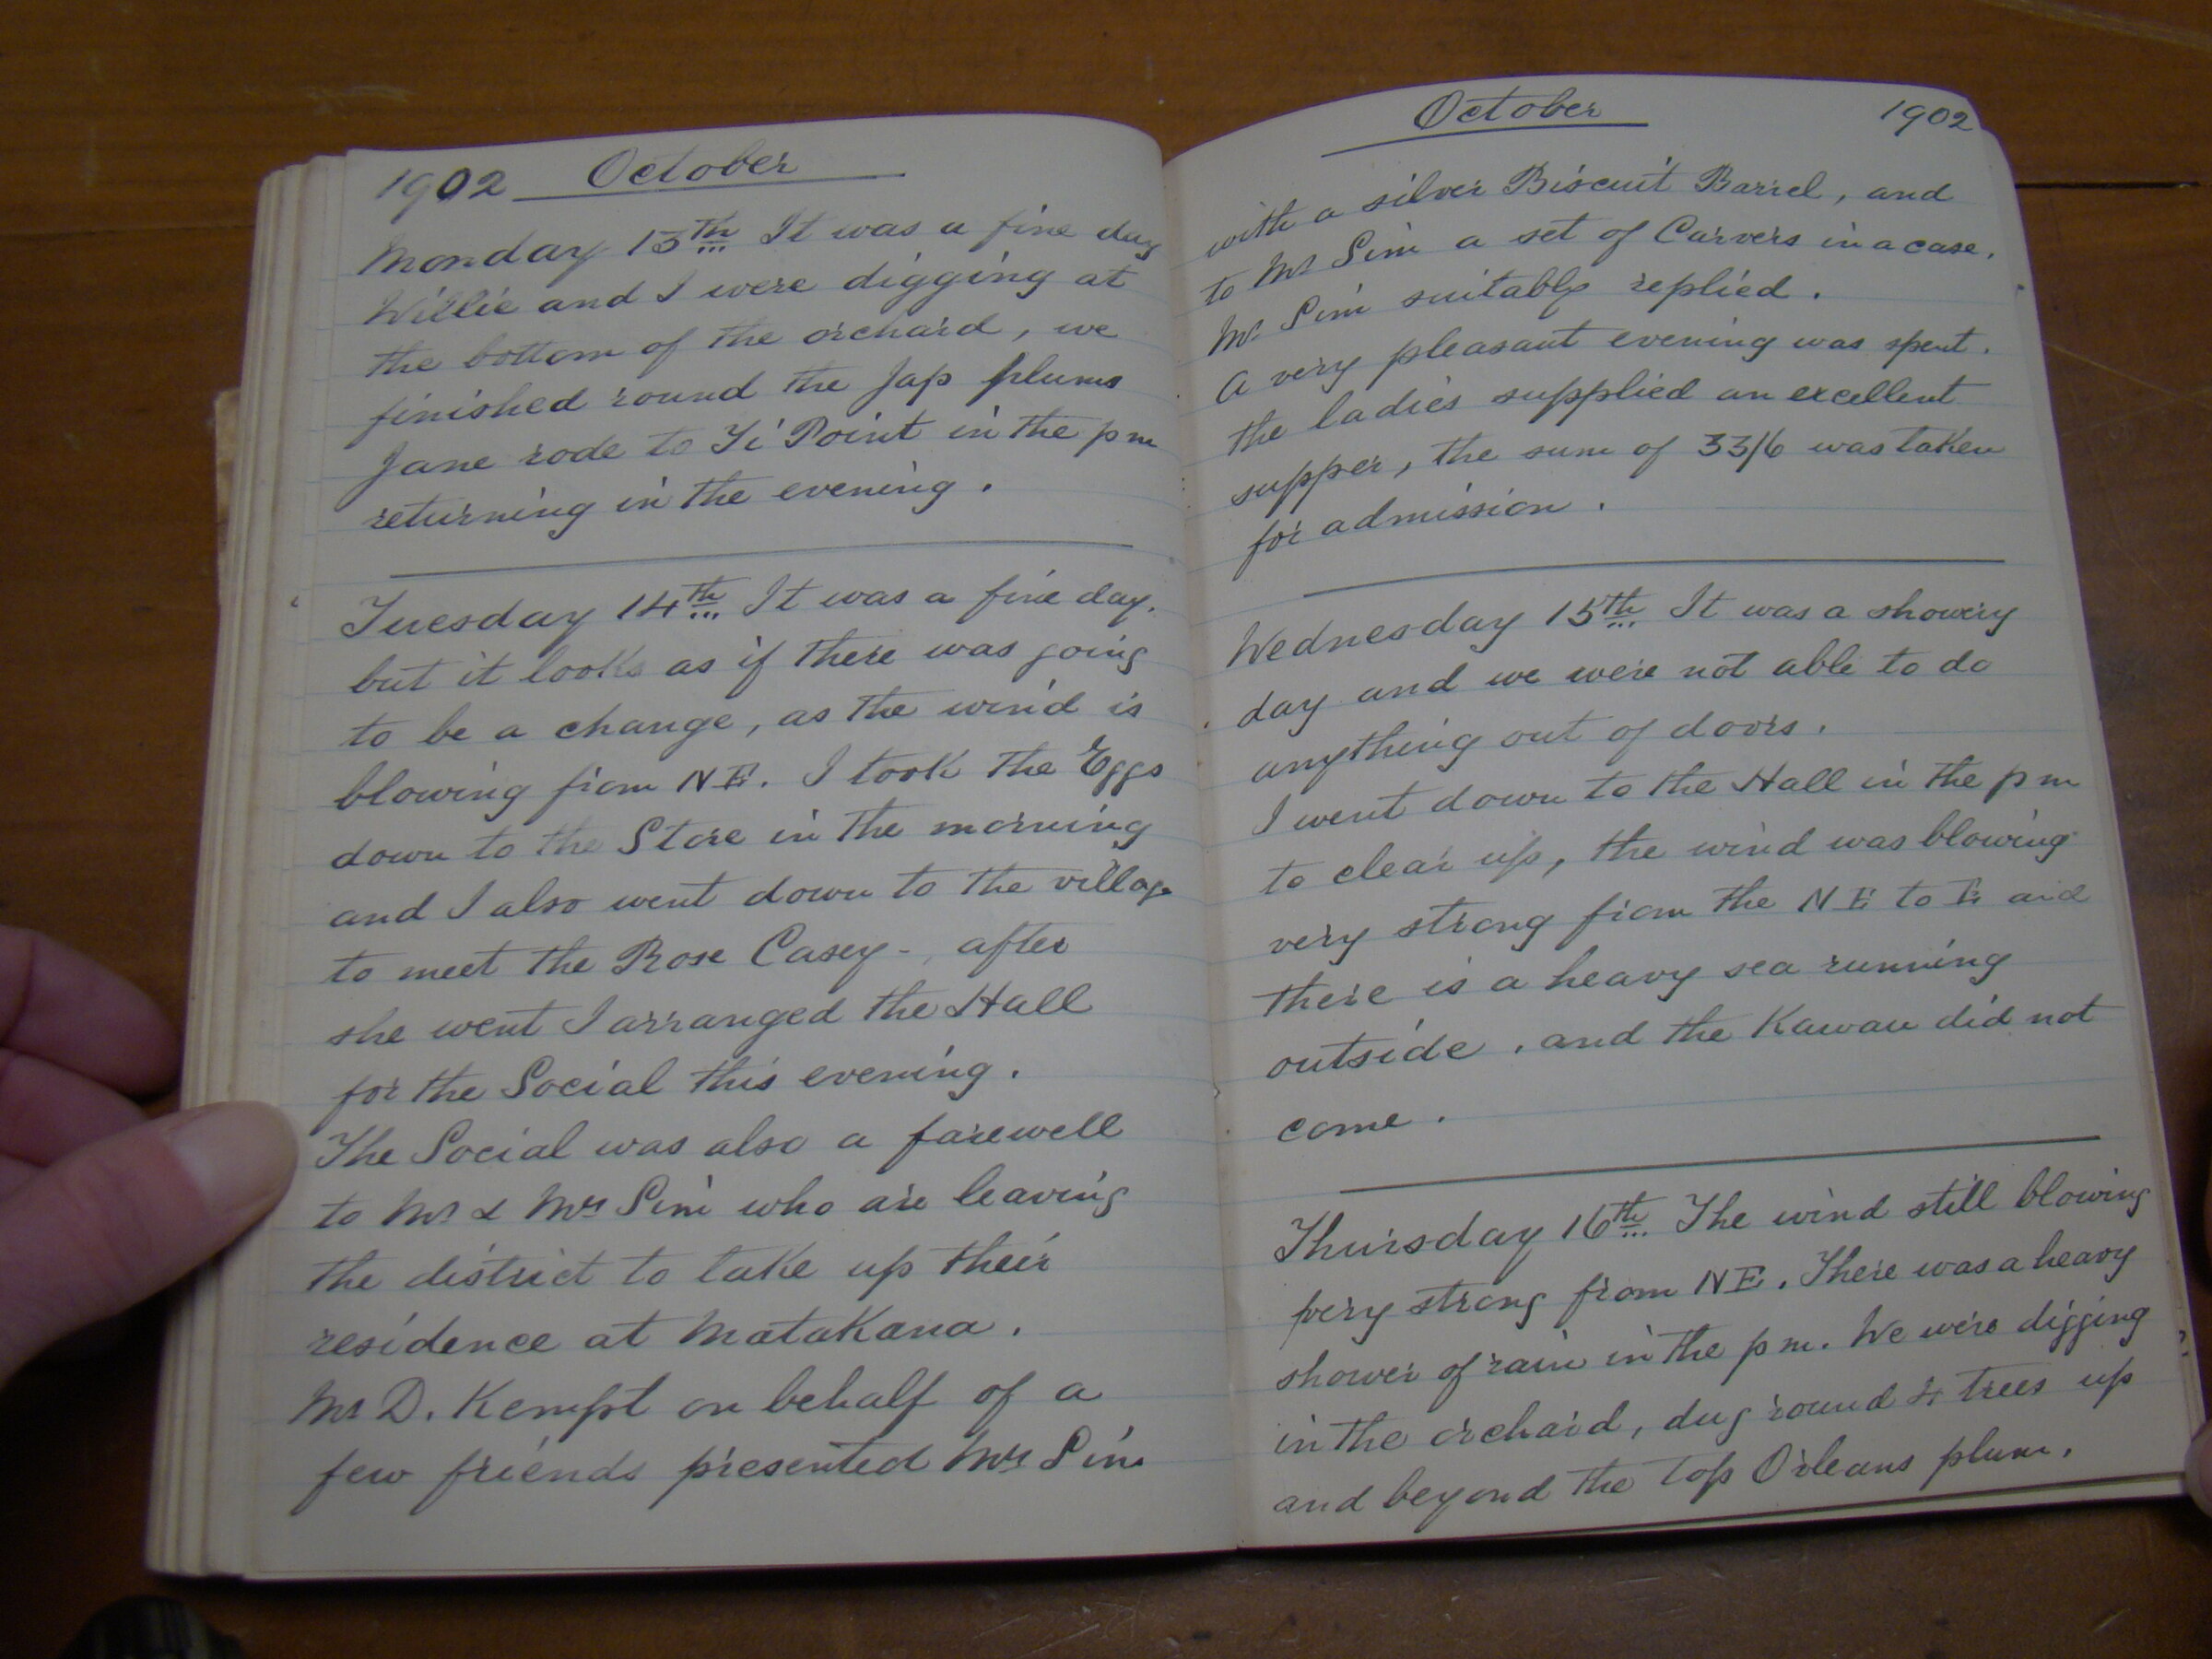 1902 October
Monday 13th It was a fine day
Willie and I were digging at
the bottom of the orchard, we
finished round the Jap plums
Jane rode to Ti Point in the pm
returning in the evening.
Tuesday 14th It was a fine day.
but it looks as if there was going
to be a change, as the wind is
blowing from NE. I took the Eggs
down to the Store in the morning
and I also went down to the village
to meet the Rose Casey - after
she went I arranged the Hall
for the Social this evening.
The Social was also a farewell
to Mr & Mrs Sim who are leaving
the district to take up their
residence at Matakana.
Mr D. Kempt on behalf of a
few friends presented Mrs Sim
October 1902
with a silver Biscuit Barrel, and
to Mr Sim a set of Carvers in a case.
Mr Sim suitably replied.
A very pleasant evening was spent.
the ladies supplied an excellent
supper, the sum of 33/6 was taken
for admission.
Wednesday 15th It was a showery
day and we were not able to do
anything out of doors.
I went down to the Hall in the pm
to clear up, the wind was blowing
very strong from the NE to E and
there is a heavy sea running
outside. and the Kawau did not
come.
Thursday 16th The wind still blowing
very strong from NE. There was a heavy
shower of rain in the pm. We were digging
in the orchard, dug round 4 trees up
and beyond the top Orleans plum.